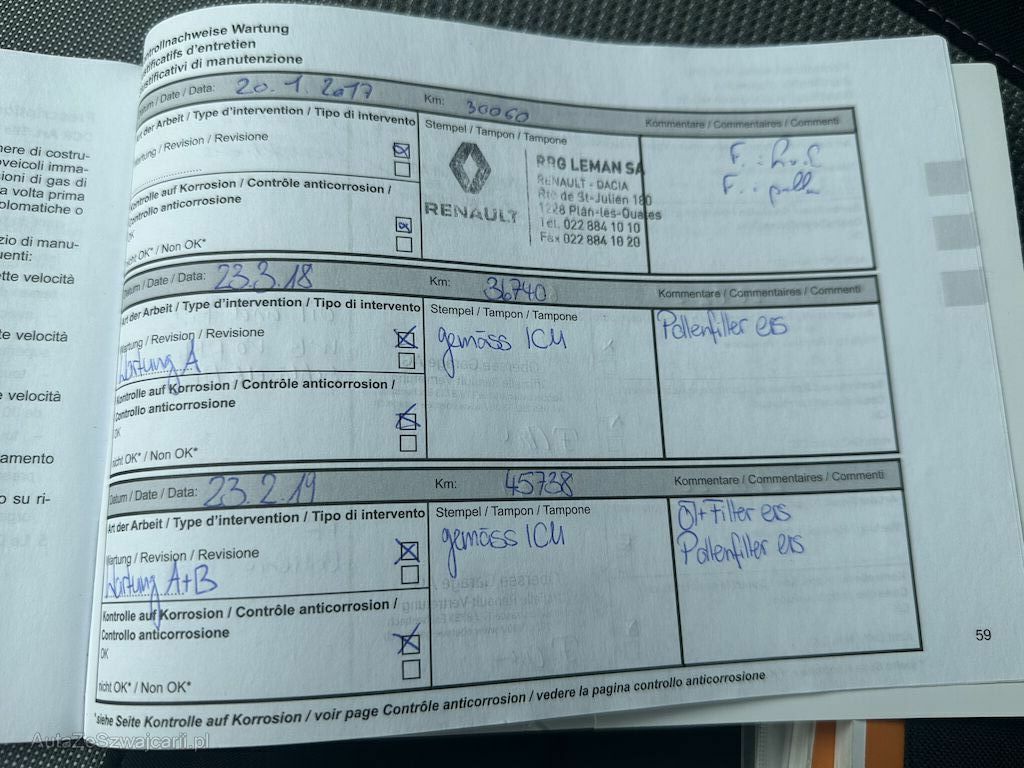 ontrollnachweise Wartung
stificatifs d'entretien
stificativi di manutenzione
Datum / Date / Data: 20.1.2017 Km: 30060
Art der Arbeit / Type d'intervention / Tipo di intervento
Stempel / Tampon / Tampone
Kommentare / Commentaires / Commenti
Wartung / Revision / Revisione
Kontrolle auf Korrosion / Contrôle anticorrosion /
Controllo anticorrosione
OK
nicht OK* / Non OK*
RENAULT
RRG LEMAN SA
RENAULT - DACIA
Rte de St-Julien 180
1228 Plan-les-Ouates
Tél. 022 884 10 10
Fax 022 884 10 20
F. :
F. :
Datum / Date / Data: 23.3.18 Km: 36740
Kommentare / Commentaires / Commenti
Art der Arbeit / Type d'intervention / Tipo di intervento
Stempel / Tampon / Tampone
Wartung / Revision / Revisione
Wartung A
gemäss ICM
Pollenfilter ers
Kontrolle auf Korrosion / Contrôle anticorrosion /
Controllo anticorrosione
OK
nicht OK* / Non OK*
Datum / Date / Data: 23.2.19 Km: 45738
Kommentare / Commentaires / Commenti
Art der Arbeit / Type d'intervention / Tipo di intervento
Stempel / Tampon / Tampone
Wartung / Revision / Revisione
Wartung A+B
gemäss ICM
Öl+Filter ers
Pollenfilter ers
Kontrolle auf Korrosion / Contrôle anticorrosion /
Controllo anticorrosione
OK
nicht OK* / Non OK*
*siehe Seite Kontrolle auf Korrosion / voir page Contrôle anticorrosion / vedere la pagina controllo anticorrosione
59
nere di costru-
oveicoli imma-
sioni di gas di
a volta prima
plomatiche o
zio di manu-
uenti:
ette velocità
te velocità
e velocità
amento
o su ri-
AutaZeSzwajcarii.pl